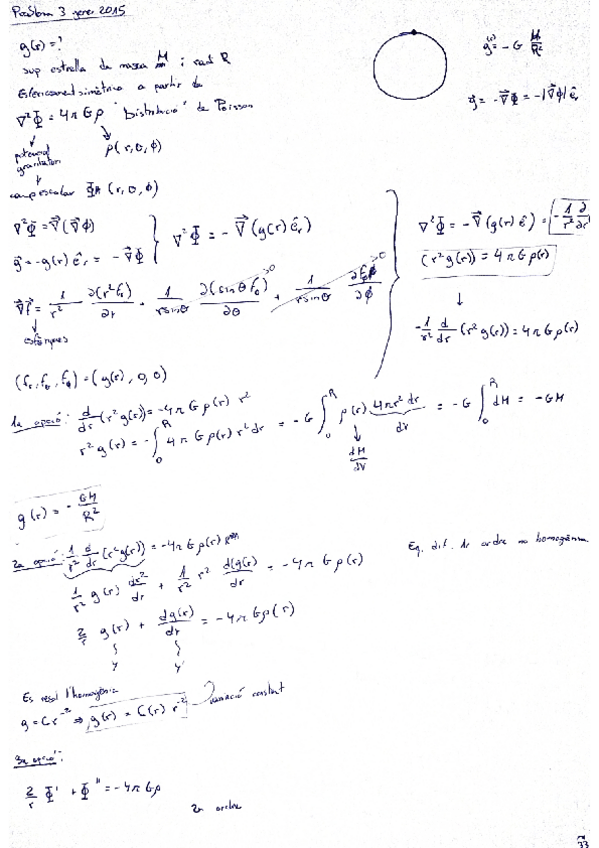 Problema 3 gener 2015
g(r) = ?
sup estrella de massa M i radi R
Esfèricament simètrica a partir de
∇²Φ = 4πGρ "Distribució" de Poisson
potencial gravitatori
ρ(r, θ, ϕ)
camp escalar Φ (r, θ, ϕ)
g = -G M/R²
g⃗ = -∇⃗Φ = -|∇⃗Φ| ê_r
∇²Φ = ∇⃗(∇⃗Φ)
g⃗ = -g(r) ê_r = -∇⃗Φ
∇²Φ = -∇⃗(g(r) ê_r)
∇⃗f⃗ = 1/r² ∂(r²f_r)/∂r + 1/(r sinθ) ∂(sinθ f_θ)/∂θ + 1/(r sinθ) ∂f_ϕ/∂ϕ
(f_r, f_θ, f_ϕ) = (g(r), 0, 0)
∇²Φ = -∇⃗(g(r) ê) = -1/r² ∂/∂r
(r²g(r)) = 4πGρ(r)
-1/r² d/dr (r²g(r)) = 4πGρ(r)
1a opció: d/dr (r²g(r)) = -4πGρ(r) r²
r²g(r) = -∫₀ᴿ 4πGρ(r) r² dr = -G ∫₀ᴿ ρ(r) 4πr² dr = -G ∫₀ᴿ dM = -GM
dV
dM/dV
g(r) = - GM/R²
2a opció: 1/r² d/dr (r²g(r)) = -4πGρ(r)
Eq. dif. 1r ordre no homogènia
1/r² g(r) dr²/dr + 1/r² r² d(g(r))/dr = -4πGρ(r)
2/r g(r) + dg(r)/dr = -4πGρ(r)
y y'
Es resol l'homogènia
g = Cr⁻² ⇒ g(r) = C(r) r⁻² variació constant
3a opció:
2/r Φ' + Φ'' = -4πGρ
2n ordre
33